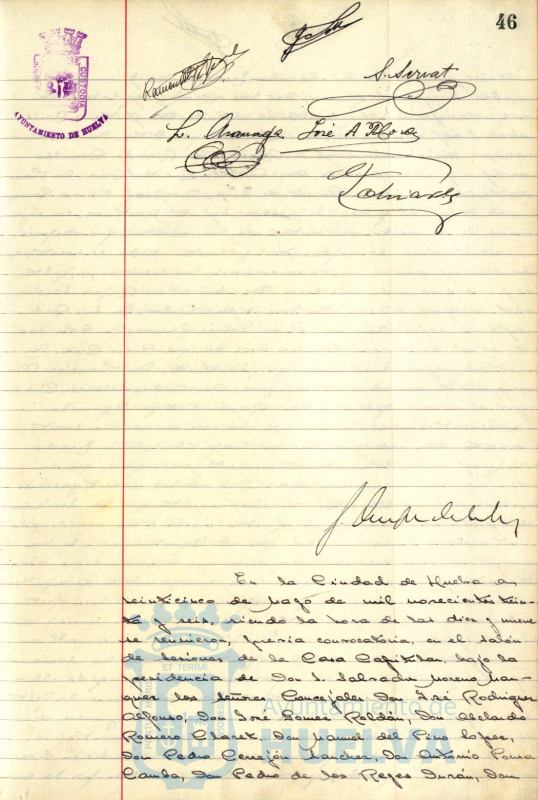 46
CUSTODIA
AYUNTAMIENTO DE HUELVA
S. Servat
José A
En la Ciudad de Huelva a
veinticinco de mayo de mil novecientos trein-
ta y seis, siendo la hora de las diez y nueve
se reunieron, previa convocatoria, en el salón
de sesiones de la Casa Capitular, bajo la
presidencia de Don Salvador Moreno Már-
quez los señores Concejales, Don José Rodríguez
Alfonso, Don José Gomez Roldán, Don Abelardo
Romero Claret, Don Manuel del Pino López,
Don Pedro Cerrejón Sanchez, Don Antonio Ponce
Don Pedro de los Reyes Durán, Don
ET TERRÆ
Ayuntamiento de
HUELVA